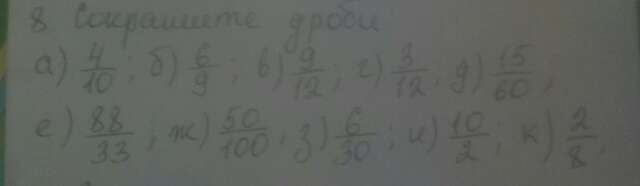 8 Сократите дроби
а) 4/10; б) 6/9; в) 9/12; г) 3/12, д) 15/60;
е) 88/33; ж) 50/100, з) 6/30; и) 10/2; к) 2/8,